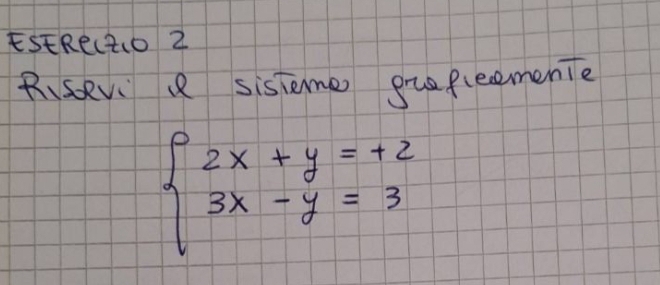 ESERCIZIO 2
Risolvi il sistema graficamente
2x + y = +2
3x - y = 3